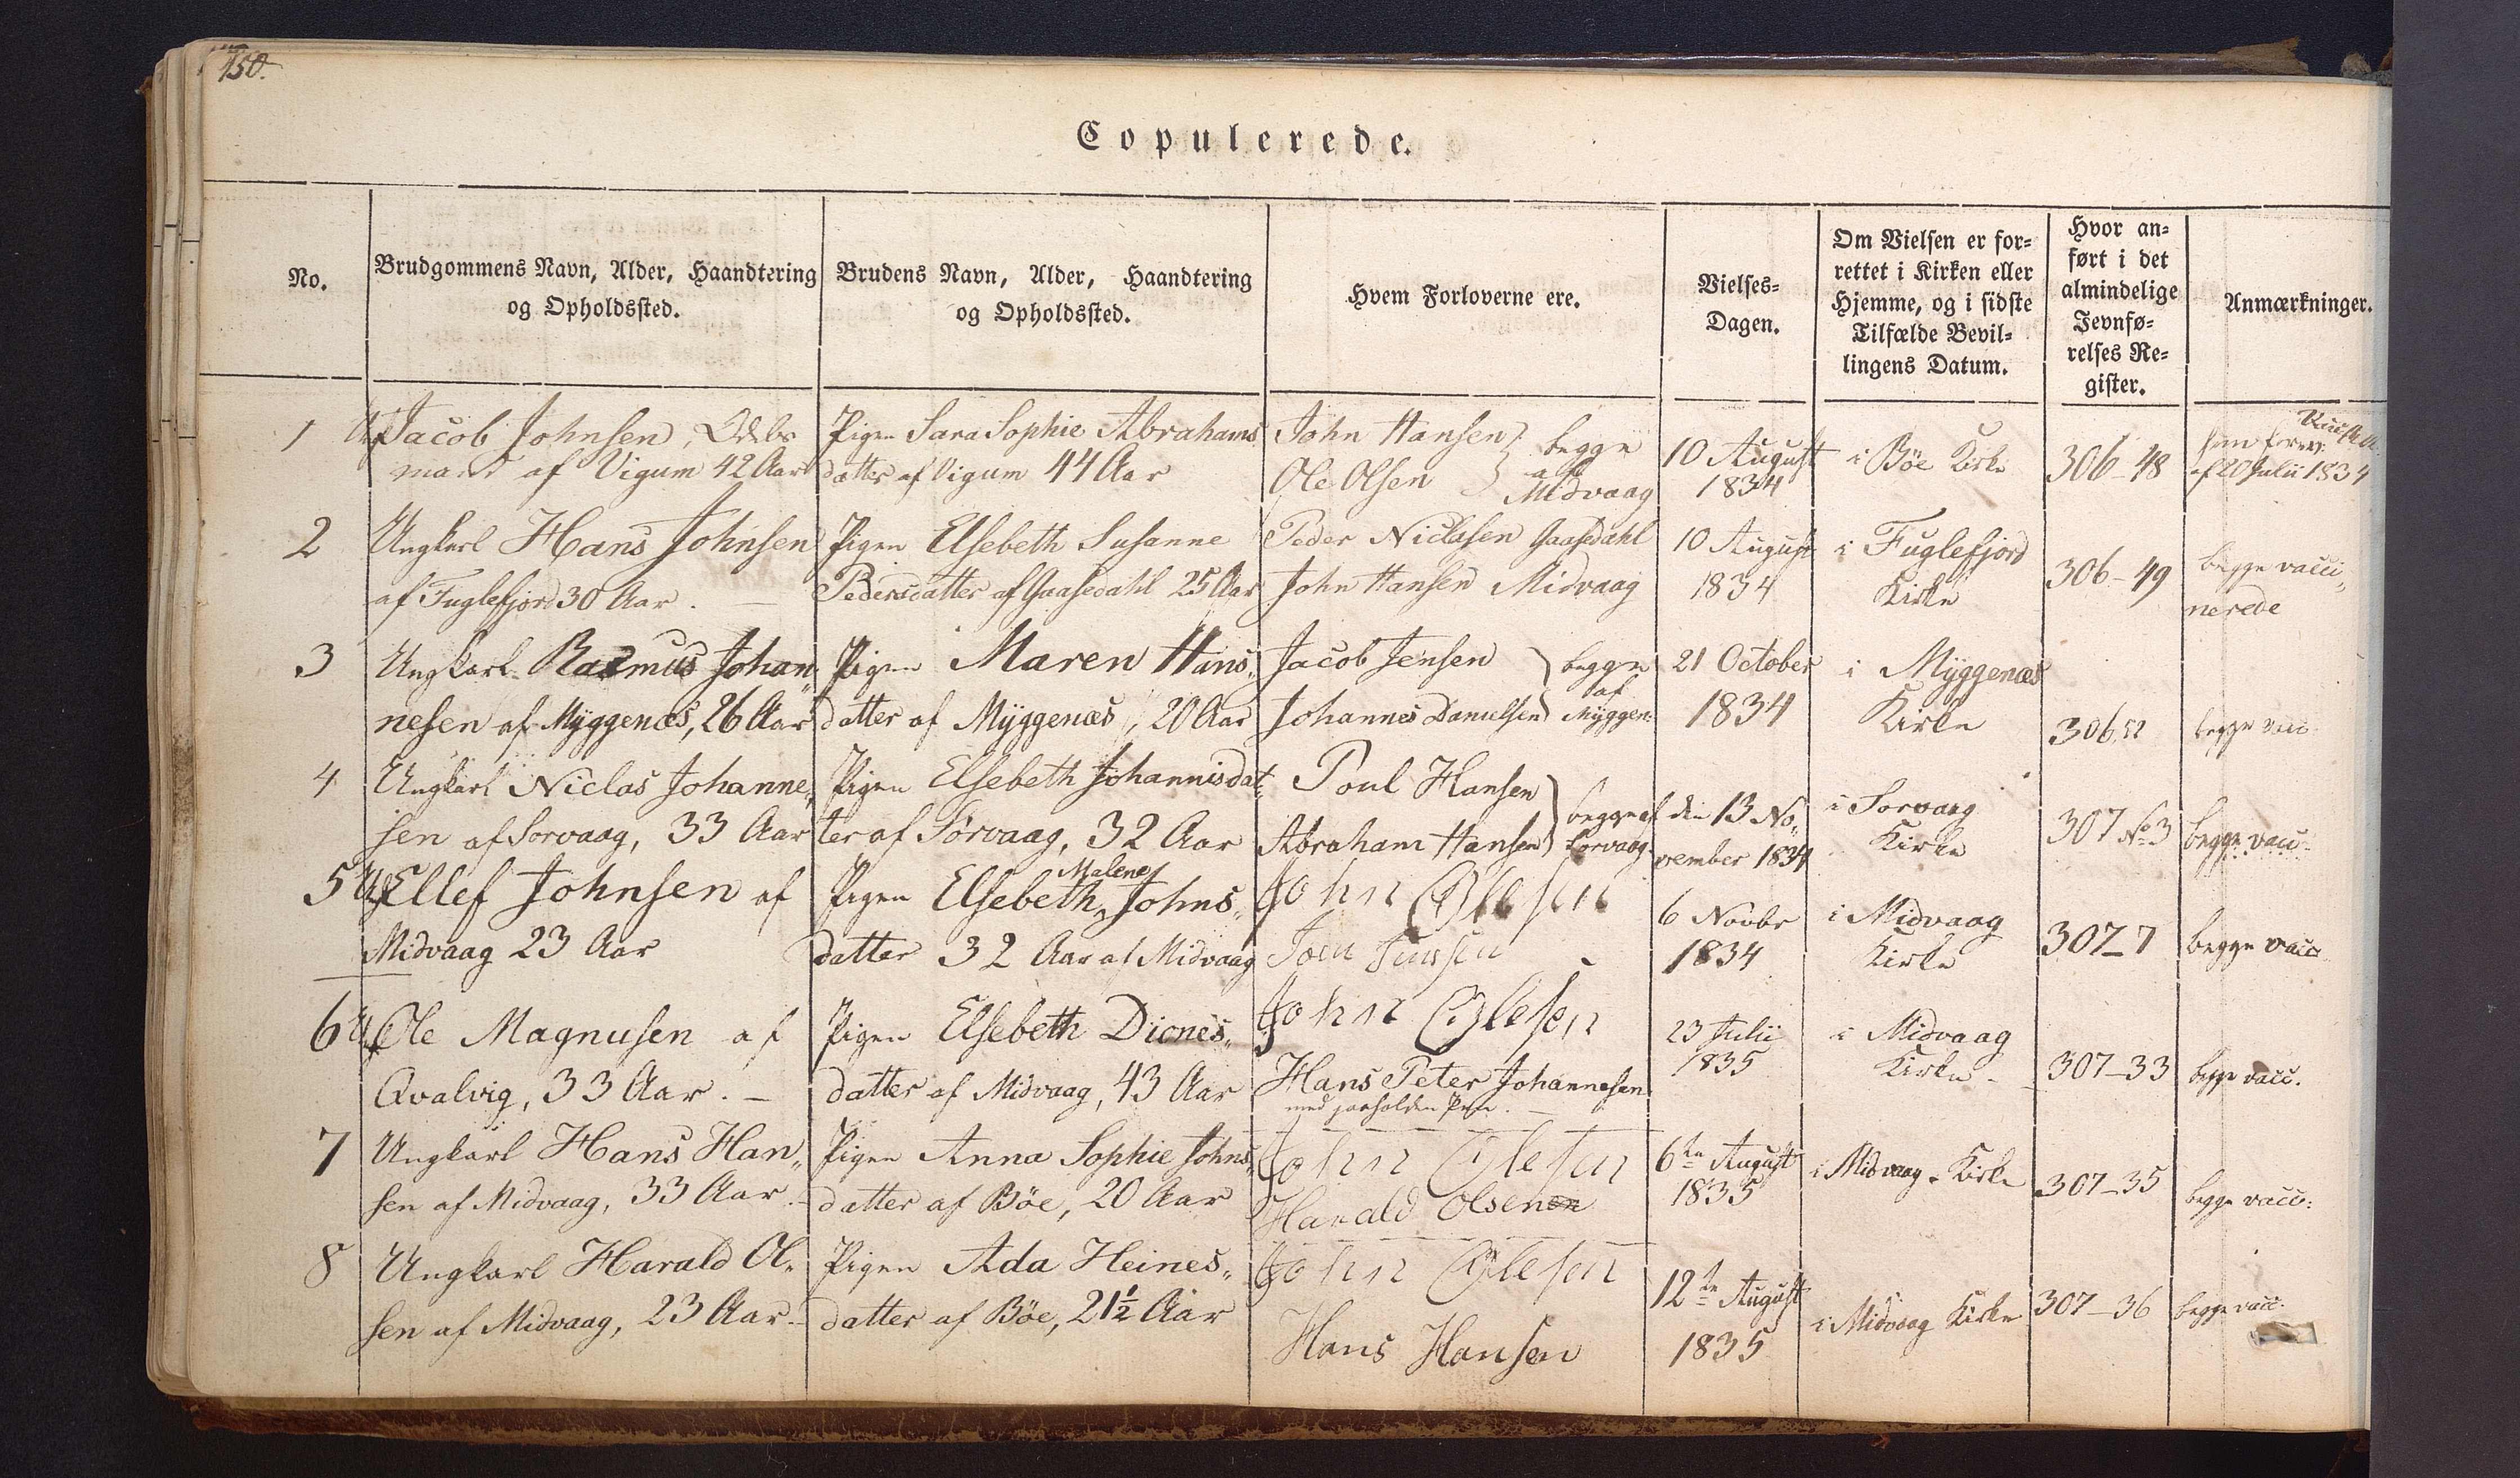 150.
Copulerede.
No.
Brudgommens Navn, Alder, Haandtering
og Opholdssted.
Brudens Navn, Alder, Haandtering
og Opholdssted.
Hvem Forloverne ere.
Vielses-
Dagen.
Om Vielsen er for-
rettet i Kirken eller
Hjemme, og i sidste
Tilfælde Bevil-
lingens Datum.
Hvor an-
ført i det
almindelige
Jevnfø-
relses Re-
gister.
Anmærkninger.
1
Jacob Johnsen, Odels
mand af Vigum 42 Aar
Pigen Sara Sophie Abrahams
datter af Vigum 44 Aar
John Hansen
Ole Olsen
begge
af
Midvaag
10 August
1834
i Bøe Kirke
306-48
af 20 Julii 1834
2
Ungkarl Hans Johnsen
af Fuglefjord 30 Aar. —
Pigen Elsebeth Susanne
Pedersdatter af Gaasedahl 25 Aar
Peder Niclasen Gaasedahl
John Hansen Midvaag
10 August
1834
i Fuglefjord
Kirke
306-49
begge vacci„
nerede
3
Ungkarl Rasmus Johan„
nesen af Myggenæs, 26 Aar
Pigen Maren Hans„
datter af Myggenæs, 20 Aar
Jacob Jensen
Johannes Danielsen
begge
af
Myggen:
21 October
1834
i Myggenæs
Kirke
306.52
begge vacc.
4
Ungkarl Niclas Johanne„
sen af Sorvaag, 33 Aar
Pigen Elsebeth Johannisdat„
ter af Sørvaag, 32 Aar
Poul Hansen
Abraham Hansen
begge af
Sorvaag
den 13 No„
vember 1834
i Sorvaag
Kirke
307 No 3
begge vacc.
5 Ellef Johnsen af
Midvaag 23 Aar
Malene
Pigen Elsebeth Johns„
datter 32 Aar af Midvaag
John Olesen
6 Novbr
1834
i Midvaag
Kirke
307-7
begge vacc
6 Ole Magnusen af
Qvalvig, 33 Aar. —
Pigen Elsebeth Diones„
datter af Midvaag, 43 Aar
John Olesen
Hans Peter Johannesen
med paaholden Pen. —
23 Julii
1835
i Midvaag
Kirke -
307-33
begge vacc.
7
Ungkarl Hans Han„
sen af Midvaag, 33 Aar. -
Pigen Anna Sophie Johns„
datter af Bøe, 20 Aar
John Olesen
Harald Olsen
6te August
1835
i Midvaag Kirke
307-35
begge vacc:
8
Ungkarl Harald Ol„
sen af Midvaag, 23 Aar. -
Pigen Ada Heines„
datter af Bøe, 21½ Aar
John Olesen
Hans Hansen
12te August
1835
i Midvaag Kirke
307-36
begge vacc.